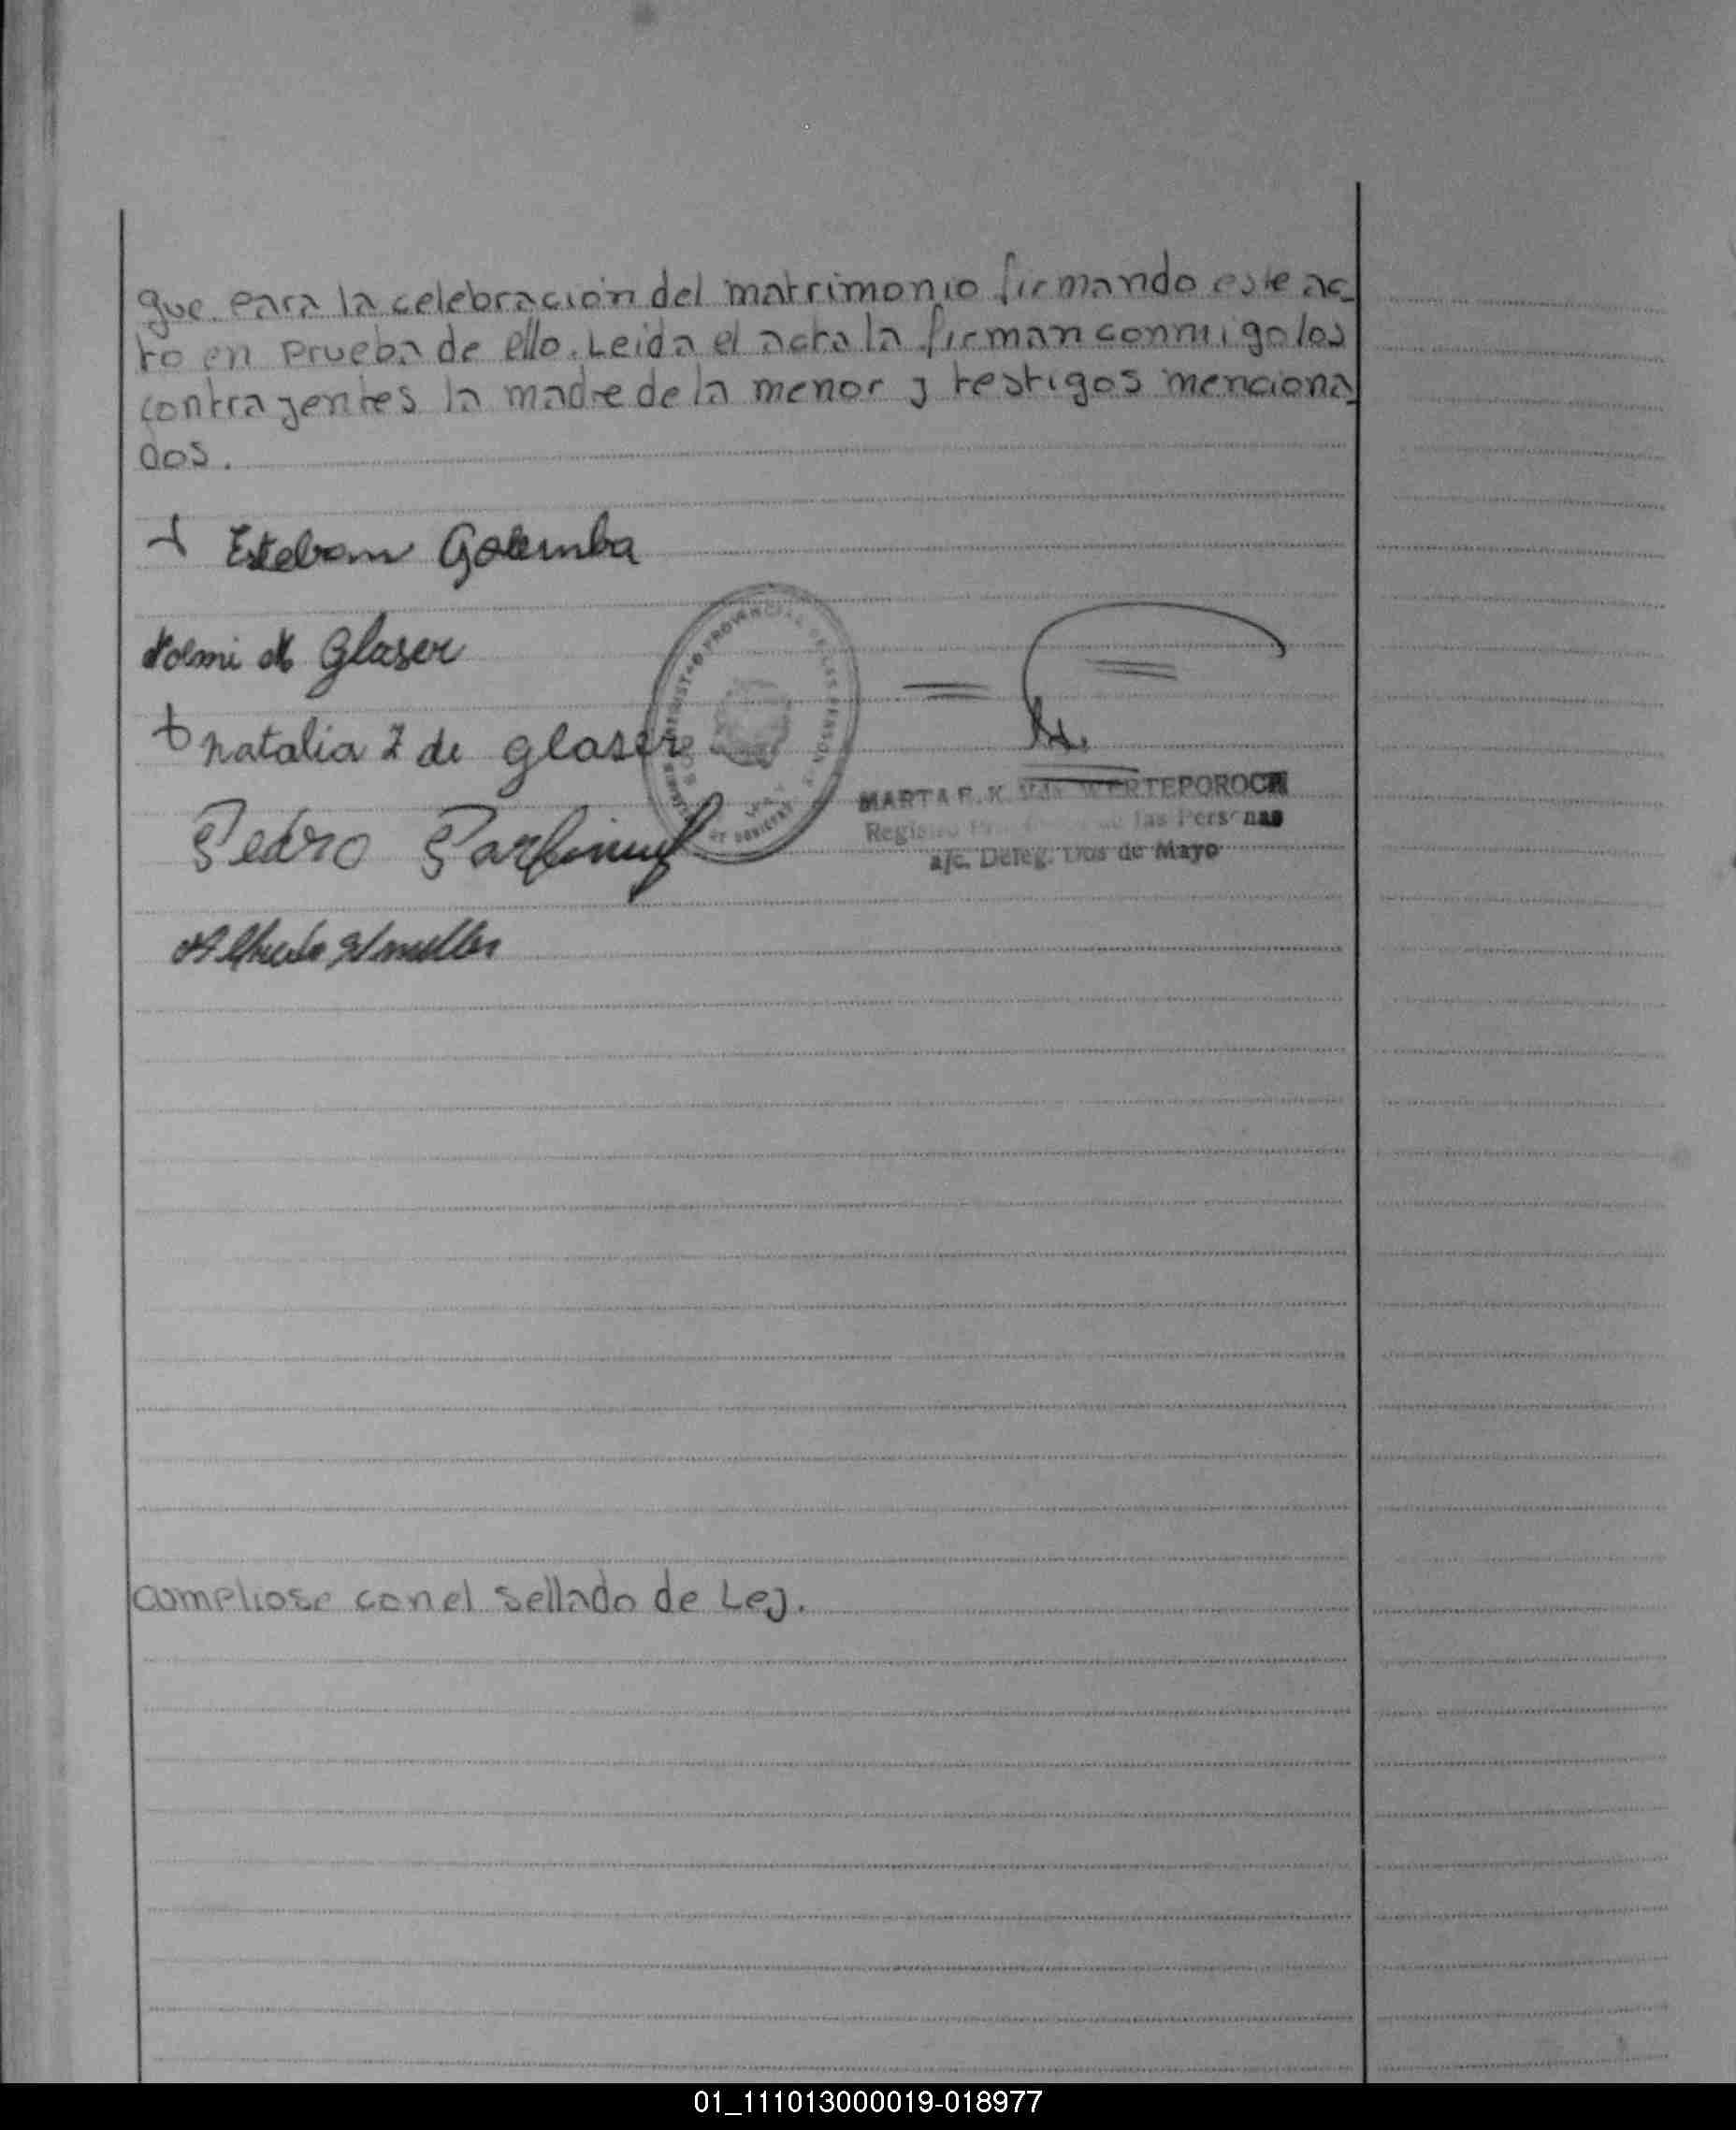 que para la celebración del matrimonio firmando este ac_
to en prueba de ello. Leida el acta la firman conmigo los
contrayentes la madre de la menor y testigos menciona_
dos.
+ Esteban Golemba
Glaser
+ natalia Z de glaser
Pedro
MARTA WERTEPOROCH
Registro de las Personas
a/c. Deleg. Dos de Mayo
Cumpliose con el sellado de Ley.
01_111013000019-018977